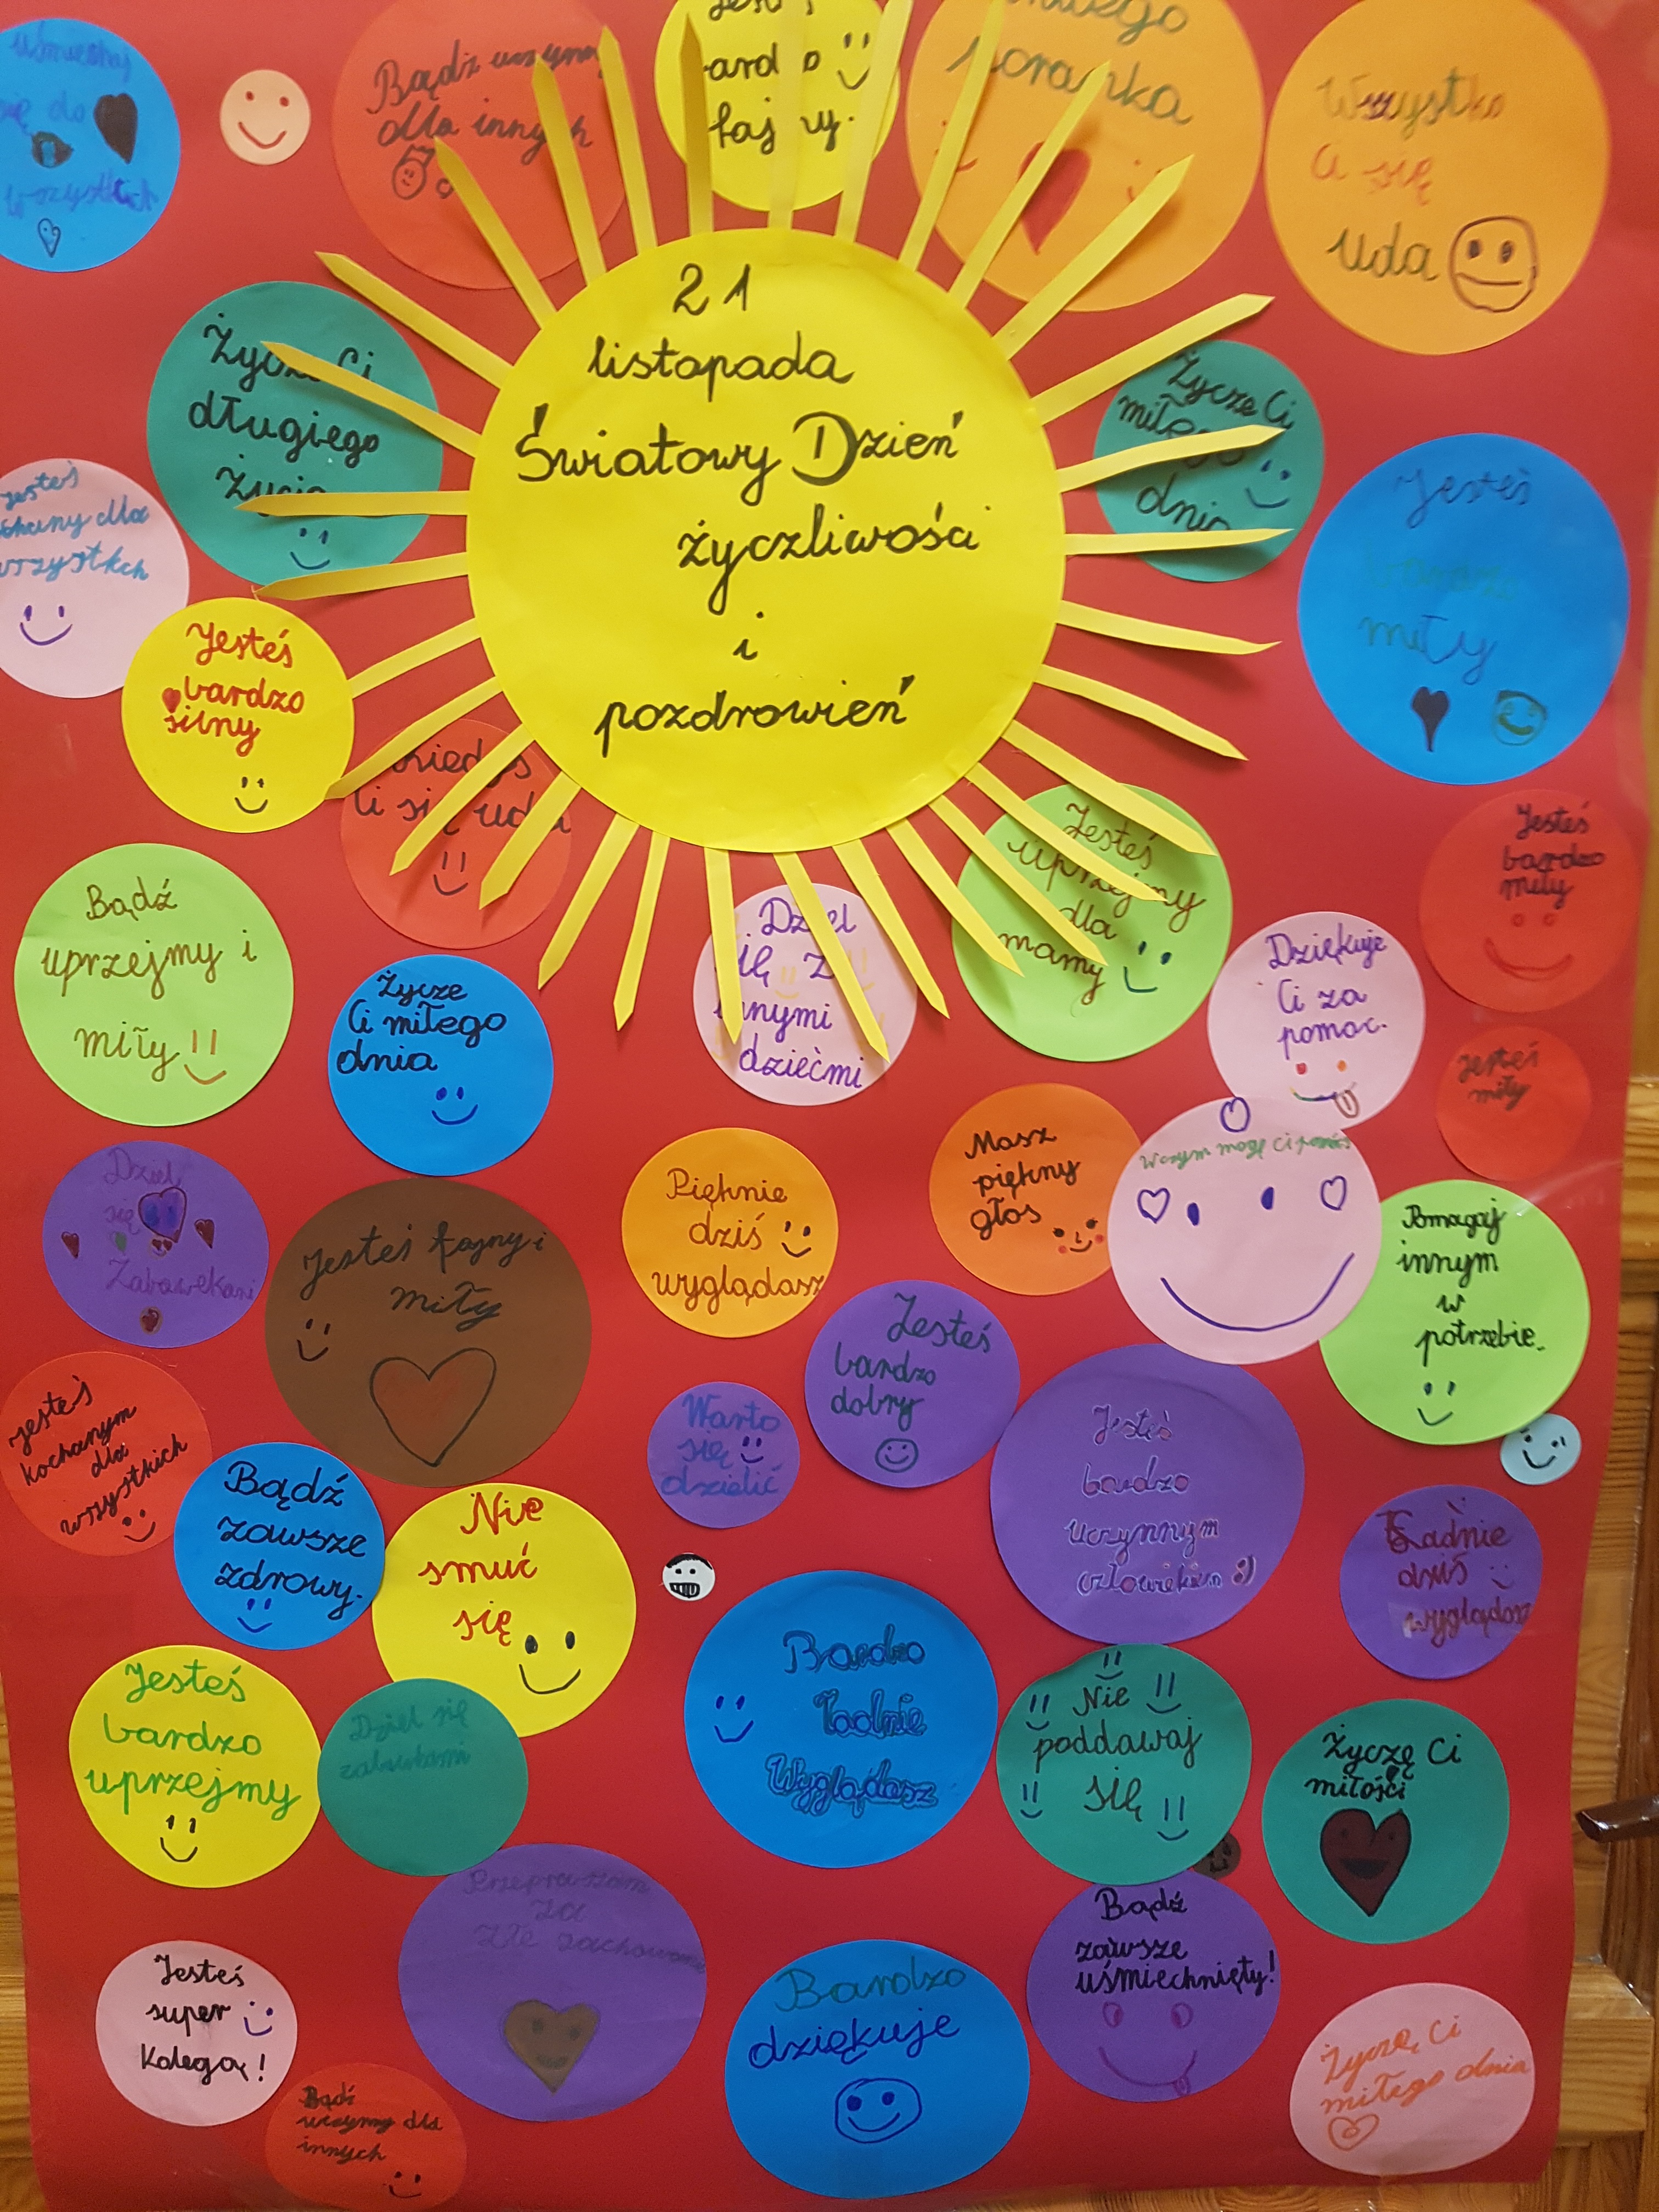 21
listopada
Światowy Dzień
życzliwości
i
pozdrowień
się do
Bądź
dla innych
Wszystko
Ci się
uda
długiego
Życzę Ci
dnia
Jesteś
wszystkch
Jesteś
bardzo
miły
Jesteś
bardzo
silny
Ci się uda
Jesteś
uprzejmy
dla
mamy
Jesteś
bardzo
miły
Bądź
uprzejmy i
miły
Życze
Ci miłego
dnia
Dziel
się z
innymi
dziećmi
Dziękuje
Ci za
pomoc.
Jesteś
miły
Dziel
się
Zabawekami
Jesteś fajny i
miły
Pięknie
dziś
wyglądasz
Masz
piękny
głos
W czym mogę Ci pomóc
Pomagaj
innym
w
potrzebie.
Jesteś
bardzo
dobry
Jesteś
kochanym
dla
wszystkich
Bądź
zawsze
zdrowy.
Nie
smuć
się
Warto
się
dzielić
Jesteś
bardzo
uczynnym
człowiekiem
Ładnie
dziś
wyglądasz
Jesteś
bardzo
uprzejmy
Dziel się
zabawkami
Bardzo
ładnie
Wyglądasz
Nie
poddawaj
się
Życzę Ci
miłości
Przepraszam
za
złe zachowanie
Bądź
zawsze
uśmiechnięty!
Jesteś
super
Kolegą!
Bardzo
dziękuje
Życzę Ci
miłego dnia
Bądź
uczymy dla
innych